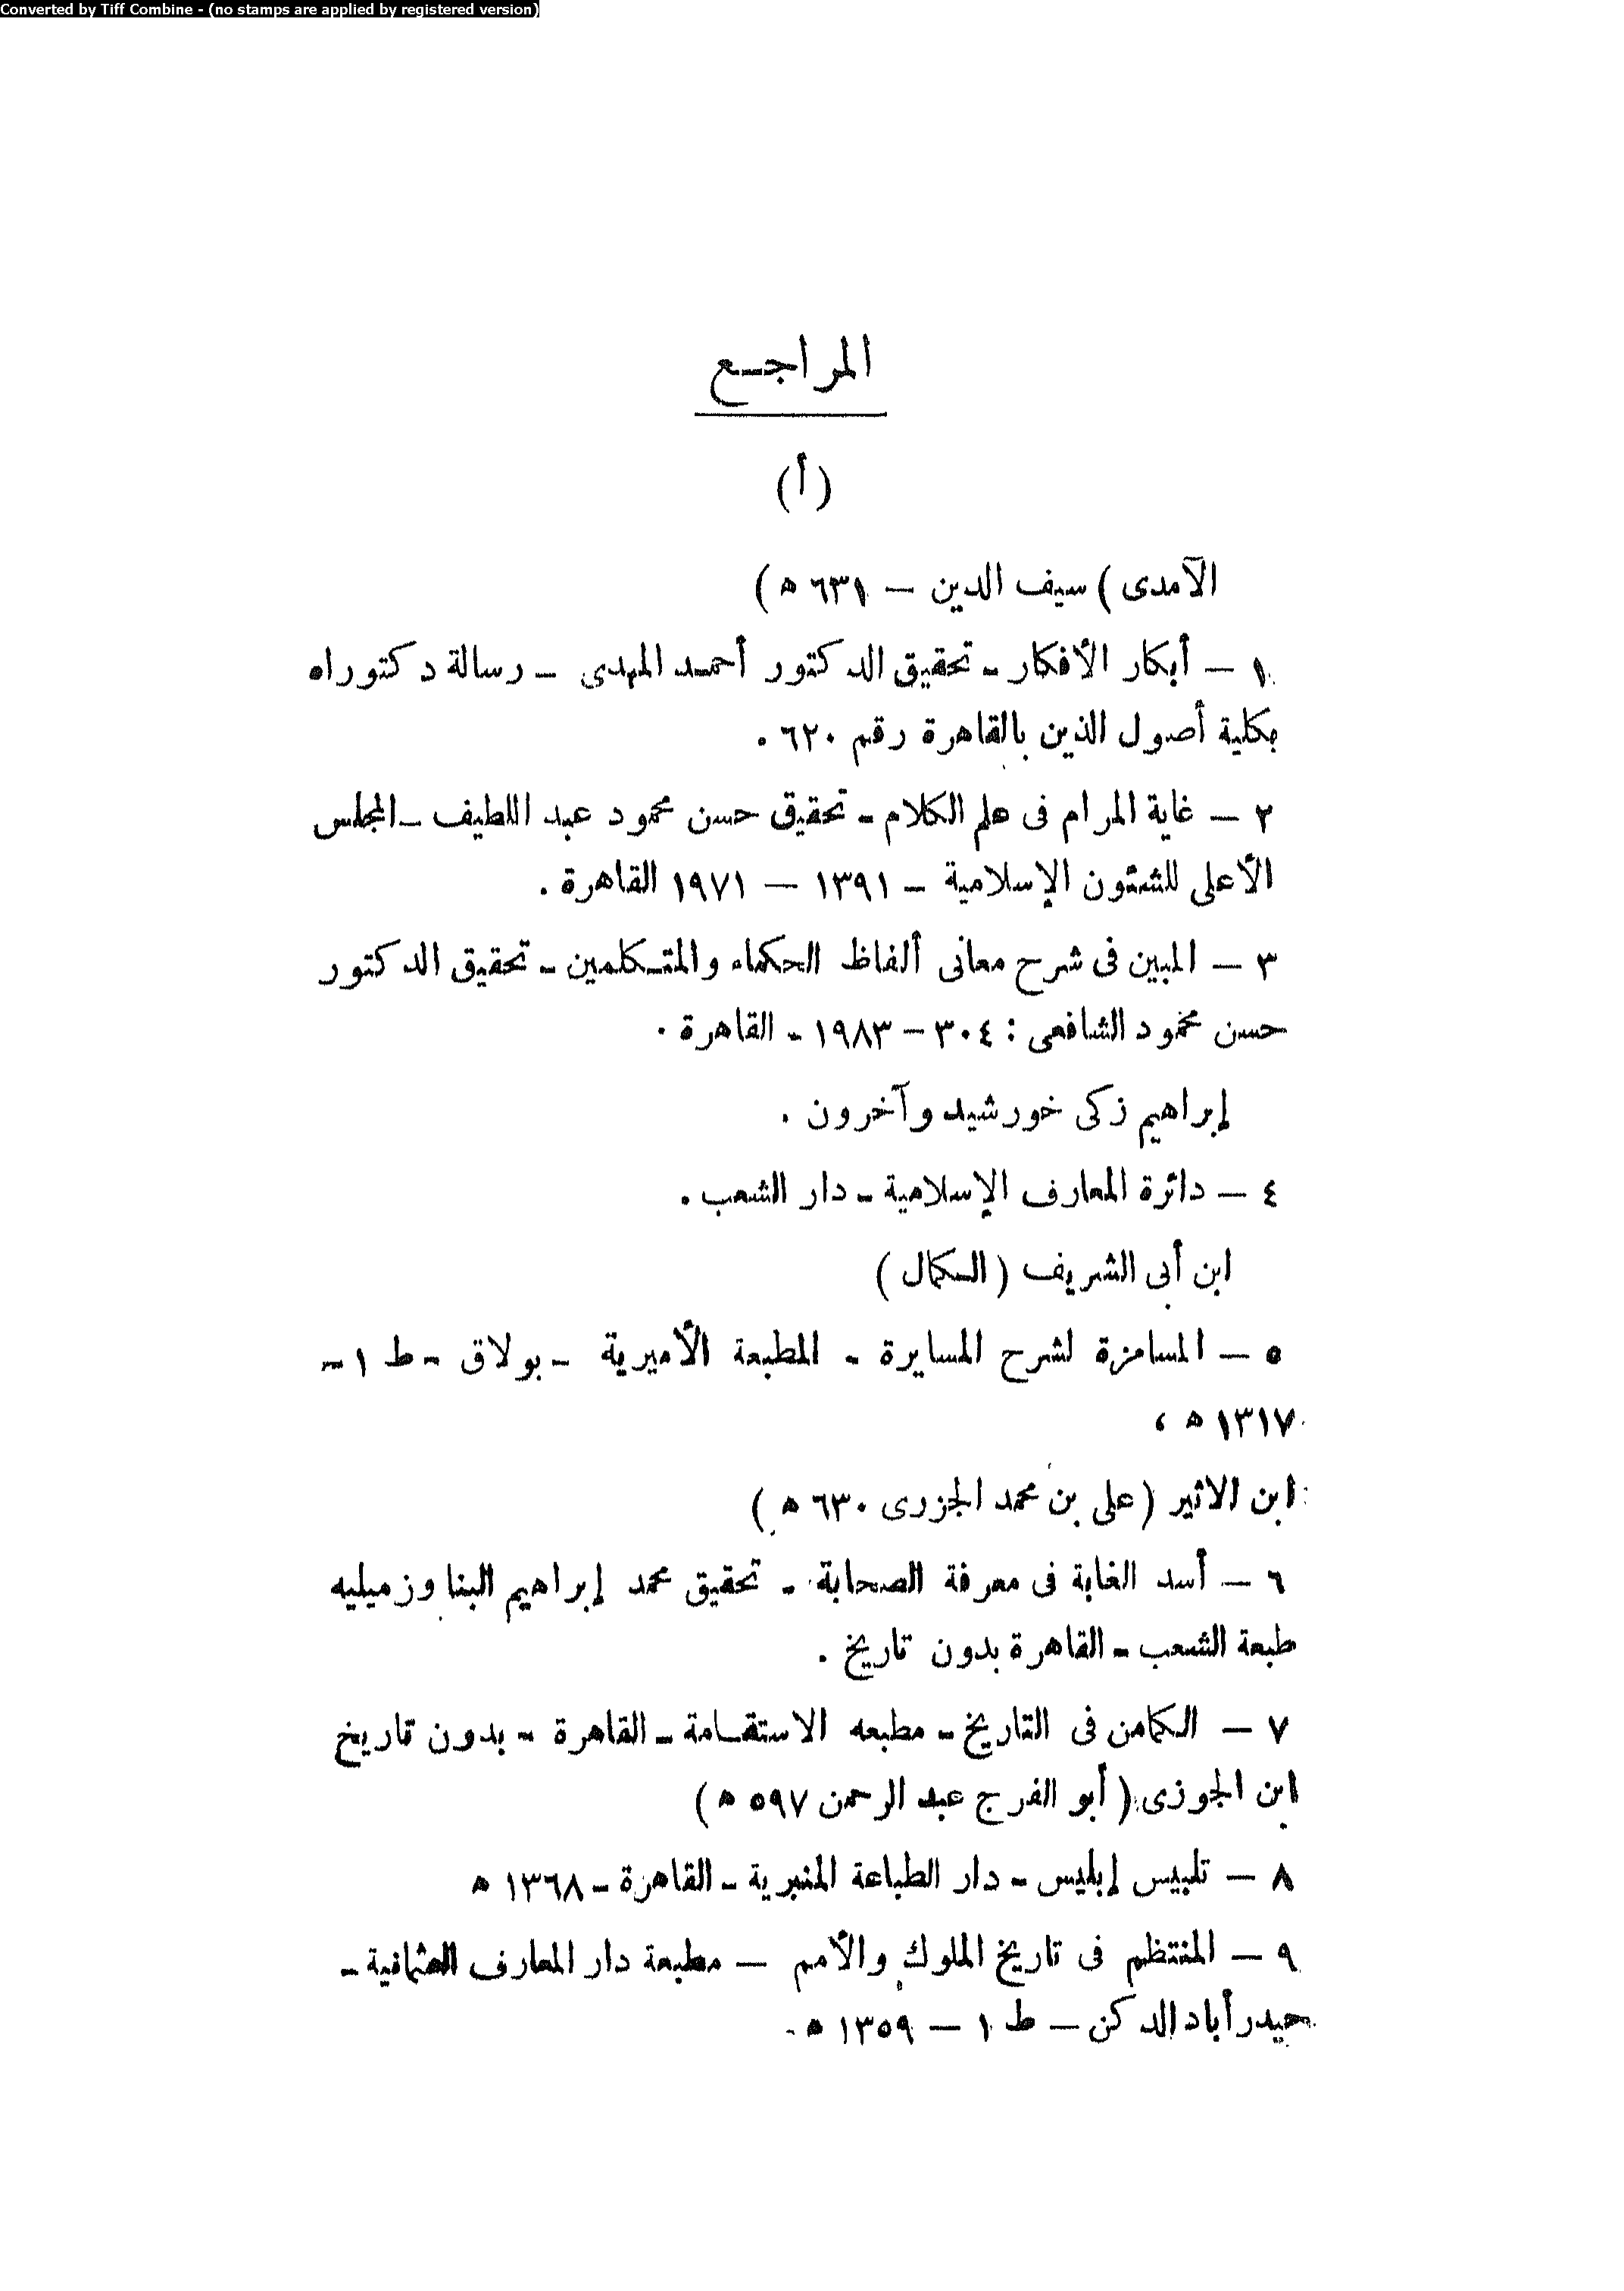 Converted by Tiff Combine - (no stamps are applied by registered version)
المراجـع
(أ)
الآمدى ) سيف الدين – ٦٣١ ه )
١ – أبكار الأفكار – تحقيق الدكتور أحمـد المهدى – رسالة دكتوراه
بكلية أصول الذين بالقاهرة رقم ٦٢٠ .
٢ – غاية المرام فى علم الكلام – تحقيق حسن محمود عبد اللطيف – المجلس
الأعلى للشئون الإسلامية – ١٣٩١ – ١٩٧١ القاهرة .
٣ – المبين فى شرح معانى ألفاظ الحكماء والمتـكلمين – تحقيق الدكتور
حسن محمود الشافعى : ٣٠٤ – ١٩٨٣ – القاهرة .
إبراهيم زكى خورشيد وآخرون .
٤ – دائرة المعارف الإسلامية – دار الشعب .
ابن أبى الشريف ( الـكمال )
٥ – المسامزة لشرح المسايرة – المطبعة الأميرية – بولاق – ط ١ –
١٣١٧ ه ،
ابن الاثير ( على بن محمد الجزرى ٦٣٠ ه )
٦ – أسد الغابة فى معرفة الصحابة – تحقيق محمد إبراهيم البنا وزميليه
طبعة الشعب – القاهرة بدون تاريخ .
٧ – الكامن فى التاريخ – مطبعه الاستقـامة – القاهرة – بدون تاريخ
ابن الجوزى ( أبو الفرج عبد الرحمن ٥٩٧ ه )
٨ – تلبيس إبليس – دار الطباعة المنبرية – القاهرة – ١٣٦٨ ه
٩ – المنتظم فى تاريخ الملوك والأمم – مطبعة دار المعارف العثمانية –
حيدر أباد الدكن – ط ١ – ١٣٥٩ ه .